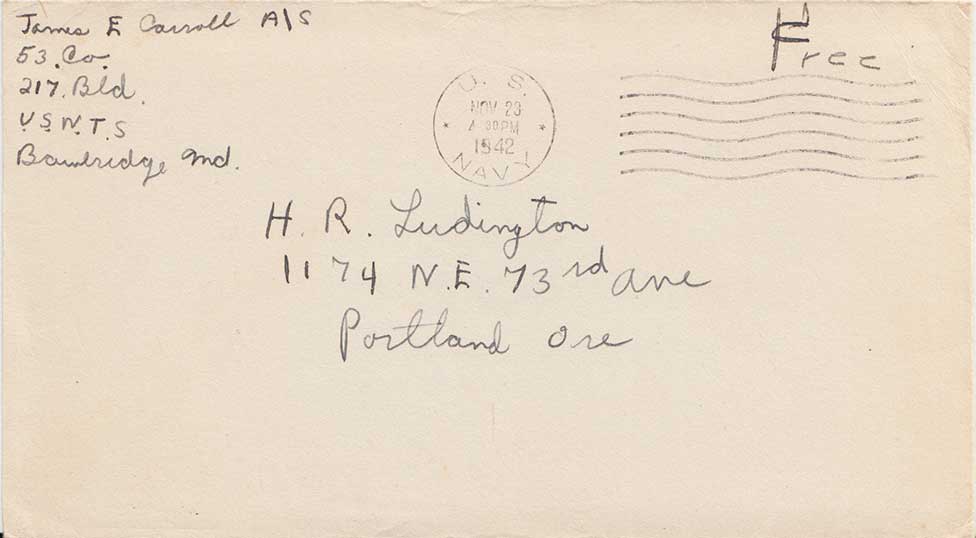 James E Carroll A/S
53. Co.
217. Bld.
U.S.N.T.S
Bainbridge Md.
Free
U. S.
NOV 23
30 PM
1942
NAVY
H. R. Ludington
1174 N.E. 73rd Ave
Portland Ore